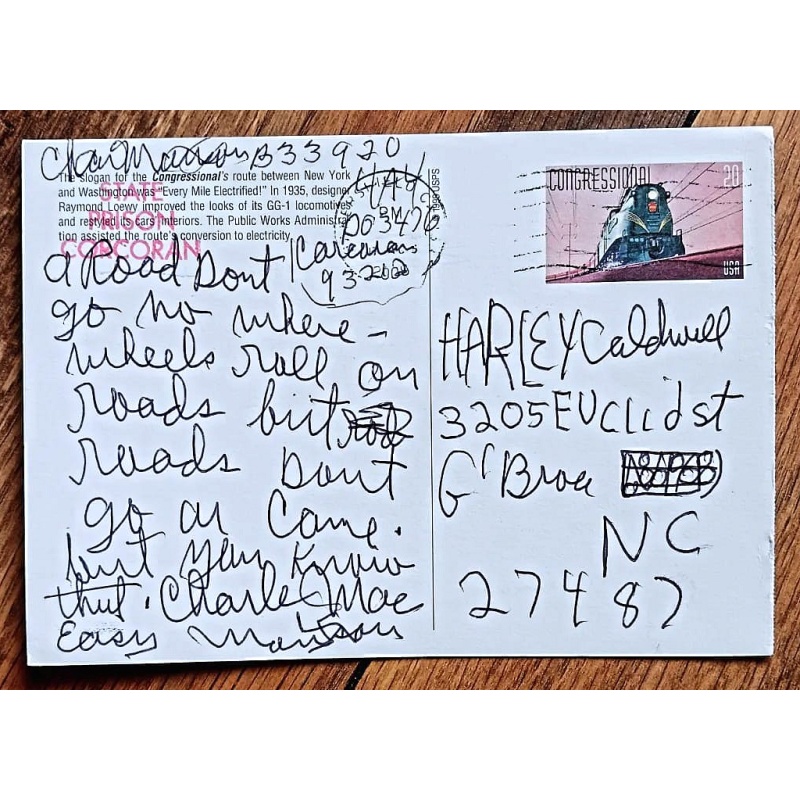 Char Manson B33920
The slogan for the Congressional's route between New York
and Washington was "Every Mile Electrified!" In 1935, designer
Raymond Loewy improved the looks of its GG-1 locomotives
and restyled its cars' interiors. The Public Works Administra-
tion assisted the route's conversion to electricity.
STATE
PRISON
CORCORAN
PO 3476
Corcoran
93212
© 1999 USPS
CONGRESSIONAL
20
USA
a Road Dont
go no where -
wheels roll on
roads but
roads Dont
go or Come.
but you Know
that. Charle Mac
Easy Manson
HARLEY Caldwell
3205 EUClid st
G'Broe
NC
27487